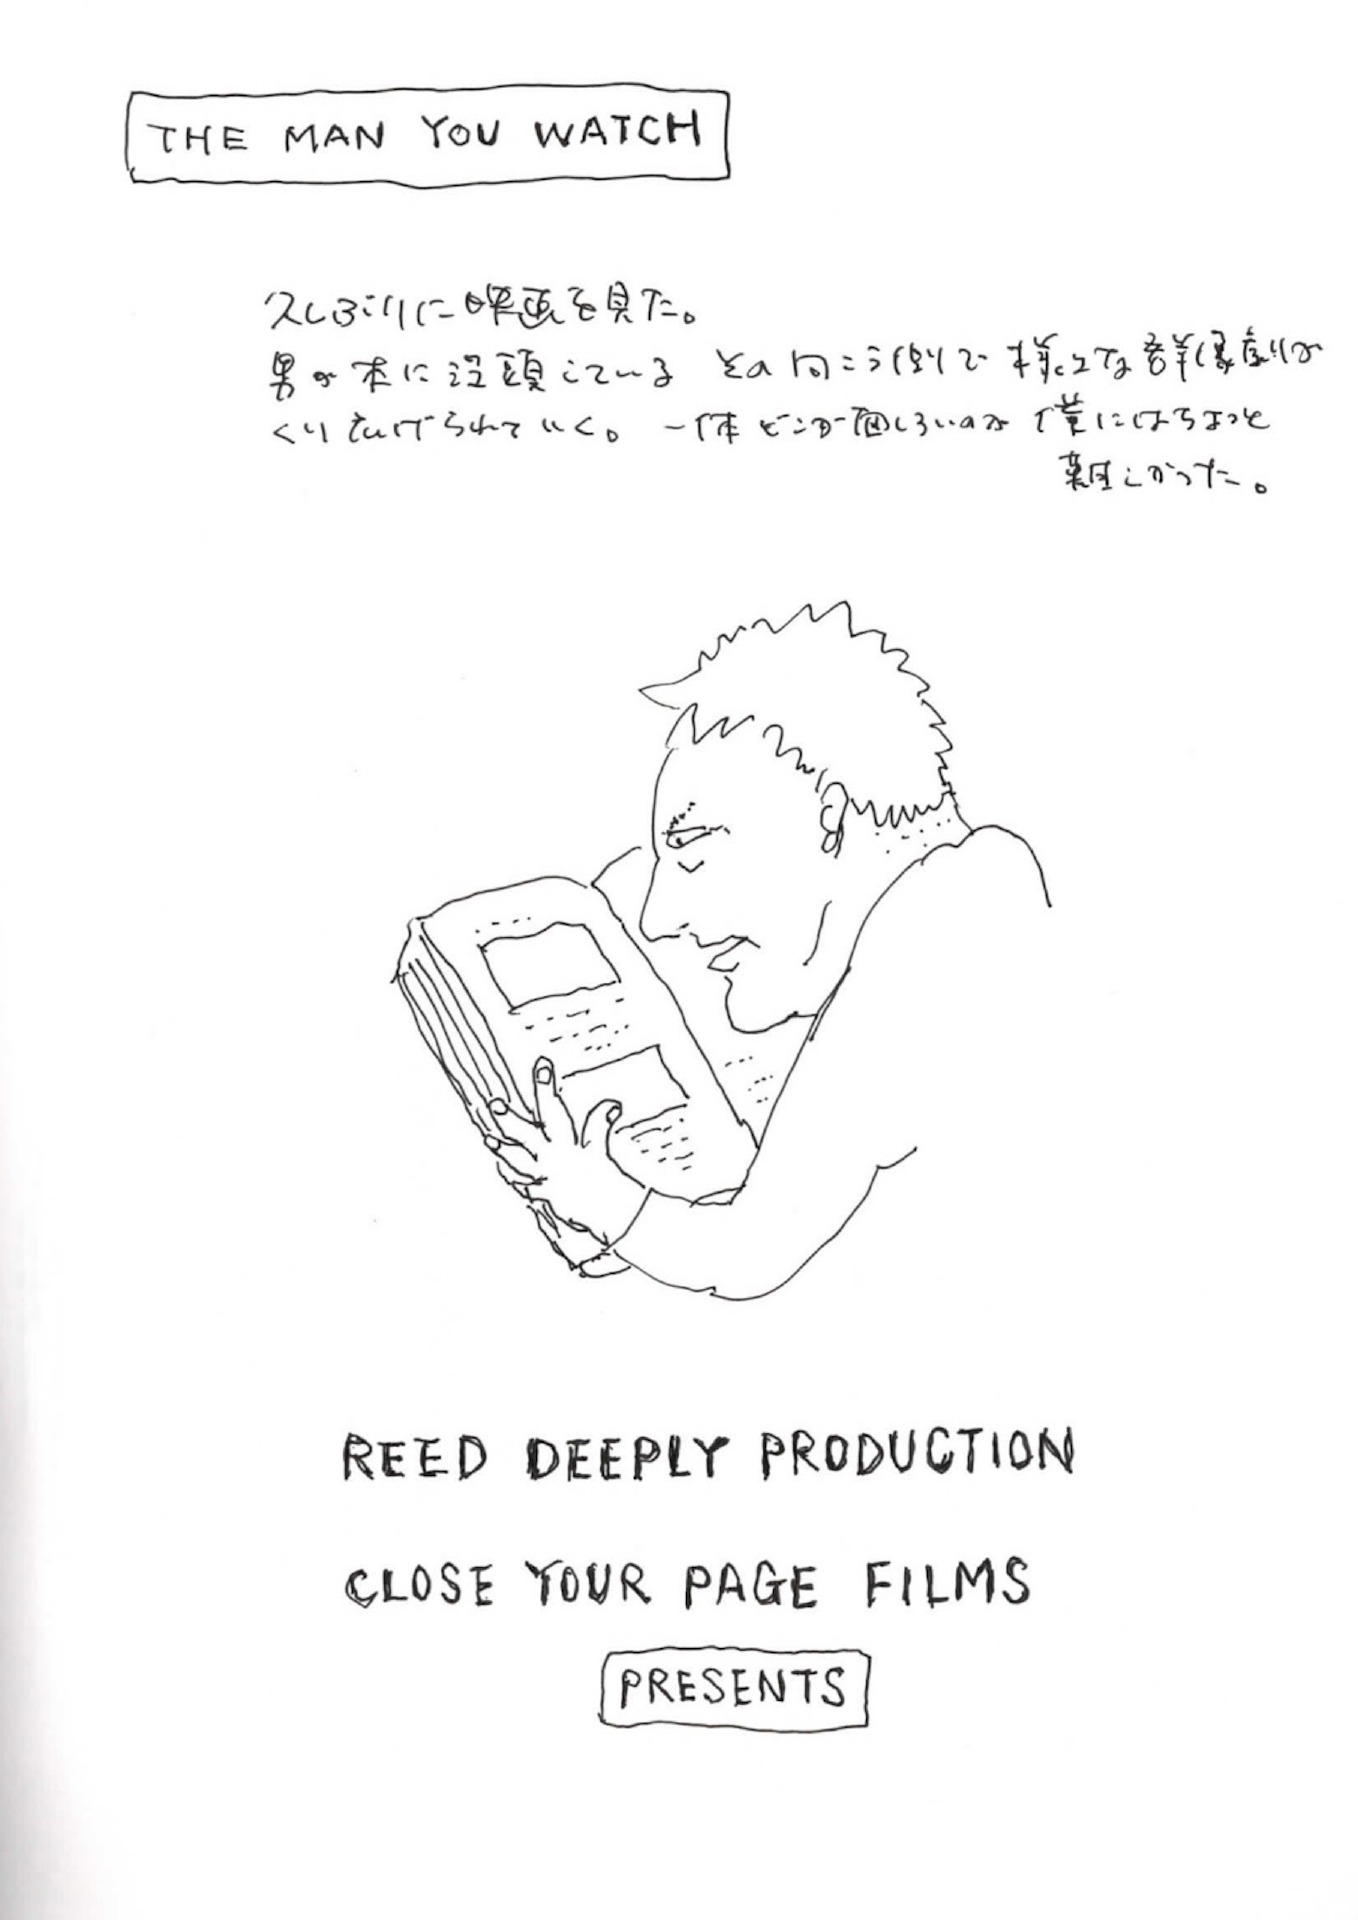 THE MAN YOU WATCH
久しぶりに映画を見た。
男が本に没頭している その向こう側で 様々な群像劇が
くり広げられていく。一体どこが面しろいのか 僕にはちょっと
難しかった。
REED DEEPLY PRODUCTION
CLOSE YOUR PAGE FILMS
PRESENTS